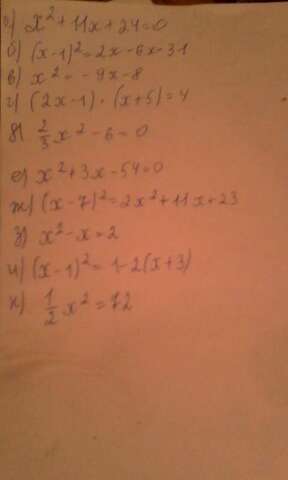 а) x² + 11x + 24 = 0
б) (x-1)² = 2x - 6x - 31
в) x² = -9x - 8
г) (2x-1) · (x+5) = 4
д) 2/3 x² - 6 = 0
е) x² + 3x - 54 = 0
ж) (x-7)² = 2x² + 11x + 23
з) x² - x = 2
и) (x-1)² = 1 - 2(x+3)
к) 1/2 x² = 72